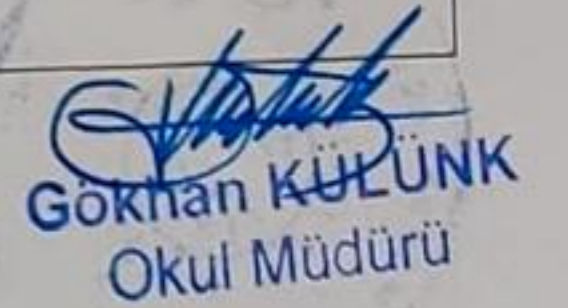 Gökhan KÜLÜNK
Okul Müdürü